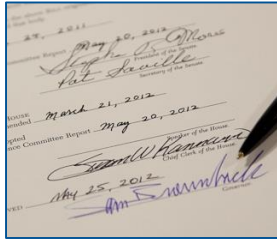 29, 2011
Committee Report May 20, 2012
President of the Senate.
Pat Saville
Secretary of the Senate.
HOUSE
March 21, 2012
Committee Report May 20, 2012
Speaker of the House.
Susan W Kannarr
Chief Clerk of the House.
May 25, 2012
Sam Brownback
GOVERNOR